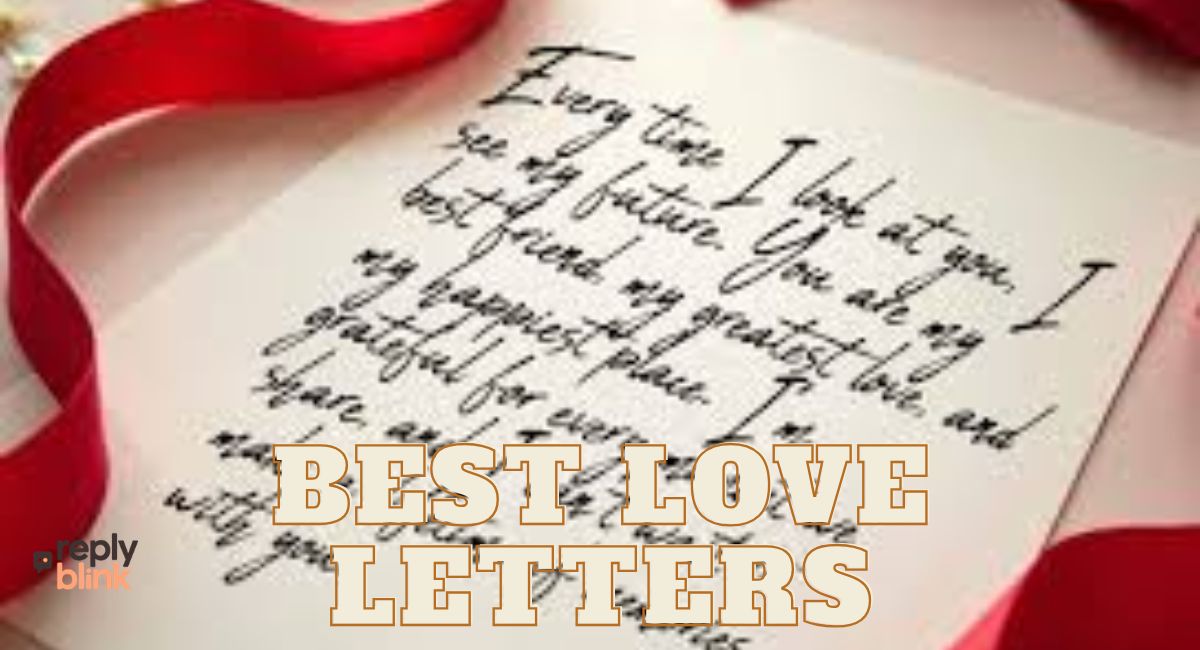 Every time I look at you, I
see my future. You are my
best friend, my greatest love, and
my happiest place. I'm
grateful for every moment we
share, and I can't wait to
with you
memories
BEST LOVE
LETTERS
reply
blink